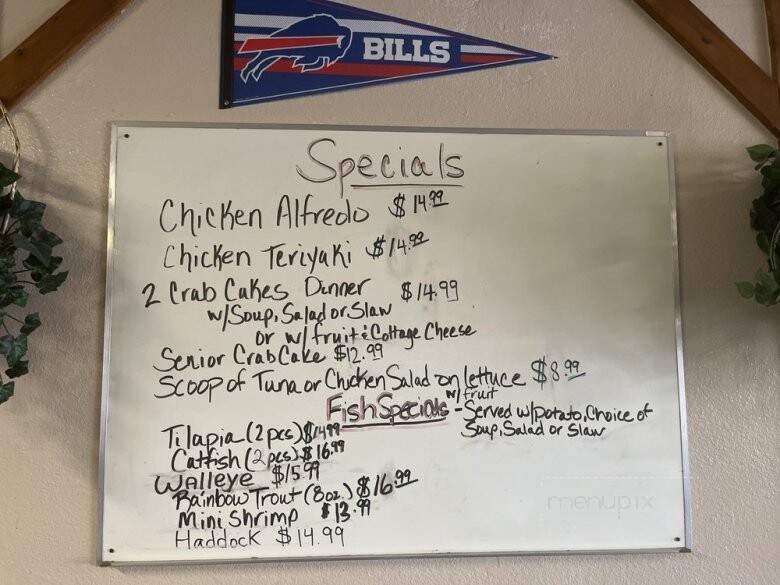 BILLS
Specials
Chicken Alfredo $14.99
Chicken Teriyaki $14.99
2 Crab Cakes Dinner $14.99
w/Soup, Salad or Slaw
or w/ fruit & Cottage Cheese
Senior Crab Cake $12.99
Scoop of Tuna or Chicken Salad on lettuce $8.99
w/fruit
Fish Specials - Served w/potato, Choice of
Soup, Salad or Slaw
Tilapia (2 pcs) $14.99
Catfish (2 pcs) $16.99
Walleye $15.99
Rainbow Trout (8oz.) $16.99
Mini Shrimp $13.99
Haddock $14.99
menupix